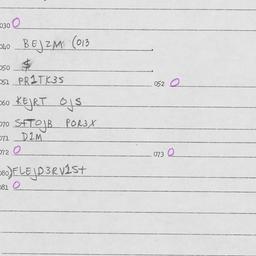 030 O
040 BEJZM (013
050 $
051 PR1TK3S 052 O
060 KEJRT OJS
070 STTOJB POR3X
071 D1M
072 O 073 O
080 )FLEJD3RV1ST
081 O